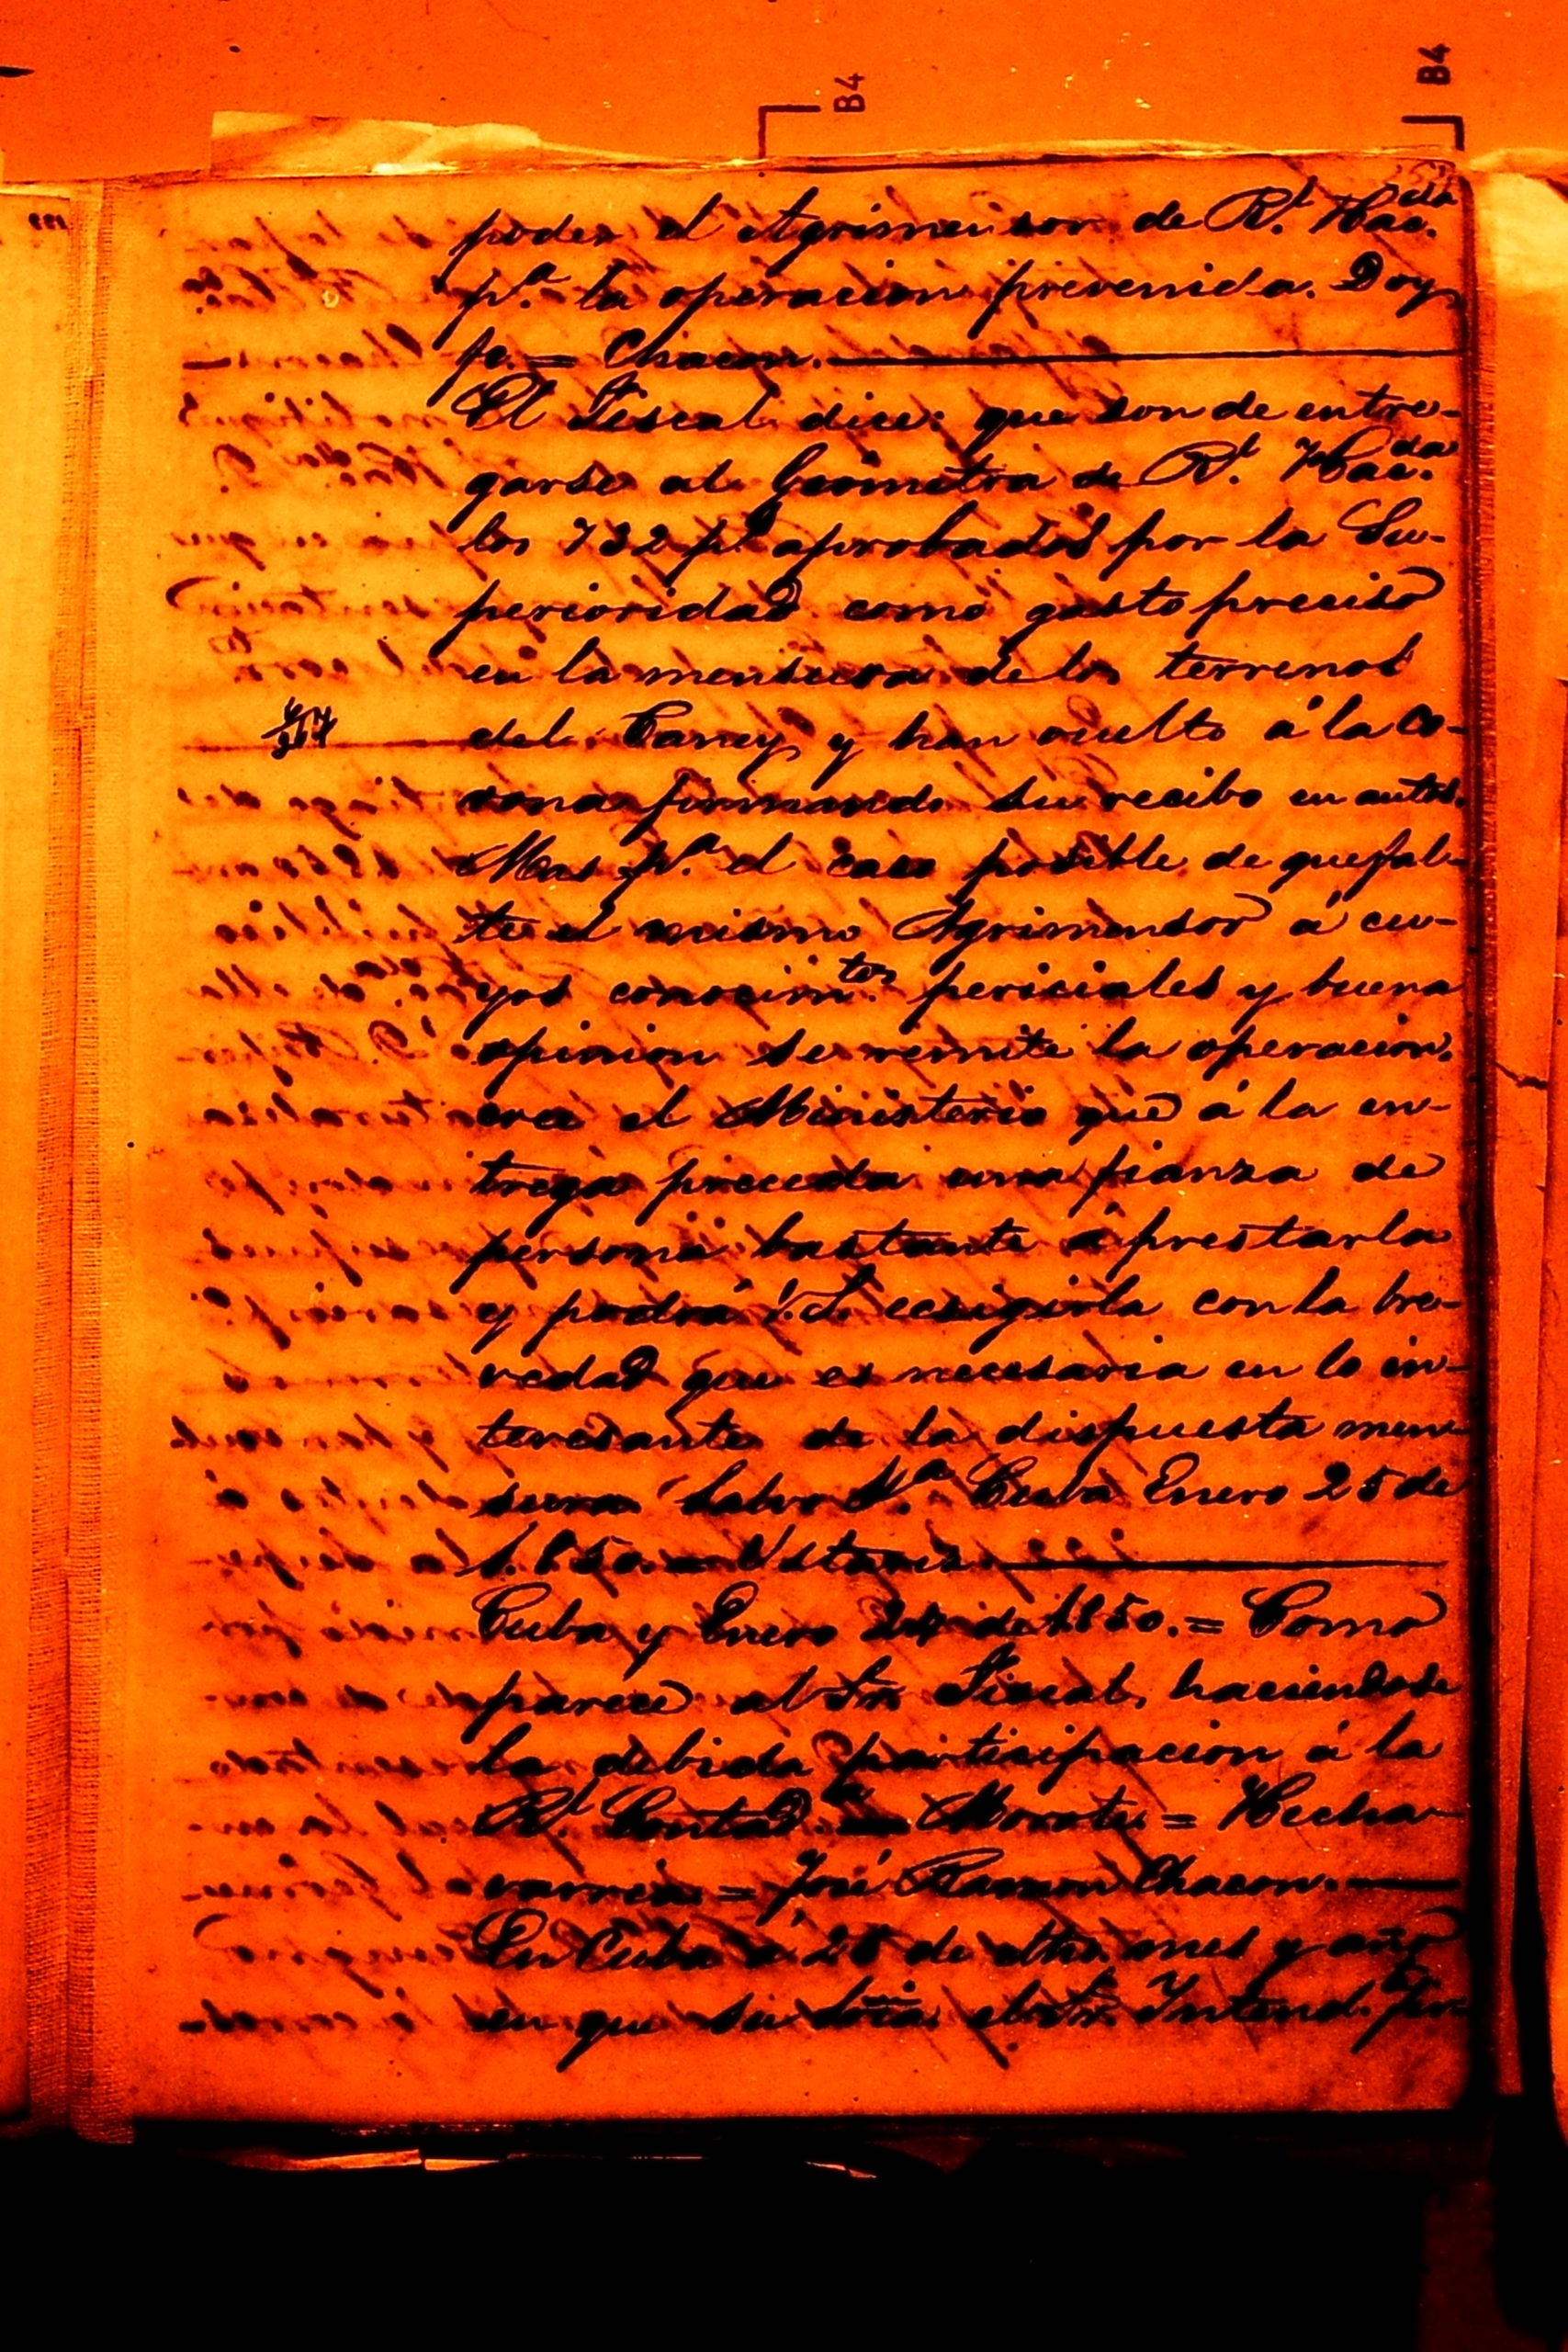 B4
B4
poder el Agrimensor de Rl. Hac.da
p.a la operacion prevenida. Doy
fe. = Chacon.
El Fiscal dice: que son de entre-
garse al Geometra de Rl. Hac.da
los 732 p.s aprobados por la Su-
perioridad como gasto preciso
en la mensura de los terrenos
del Caney y han vuelto á la Co-
rona firmando su recibo en autos.
Mas p.a el caso posible de que fal-
te el mismo Agrimensor á cu-
yos conocim.tos periciales y buena
opinion se remite la operacion,
cree el Ministerio que á la en-
trega preceda una fianza de
persona bastante á prestarla
y podrá V.S. ecsigirla con la bre-
vedad que es necesaria en lo in-
teresante de la dispuesta men-
sura Salvo &.a Cuba Enero 25 de
1.850. =
Cuba y Enero de 1850. = Como
parece al Sr. Fiscal, haciendose
la debida participacion á la
Rl. Contad.a Morote = Hecha-
varria = José Ramon Chacon.
En Cuba á de dho. mes y año
en que su Sría. el Sr. Intend.te